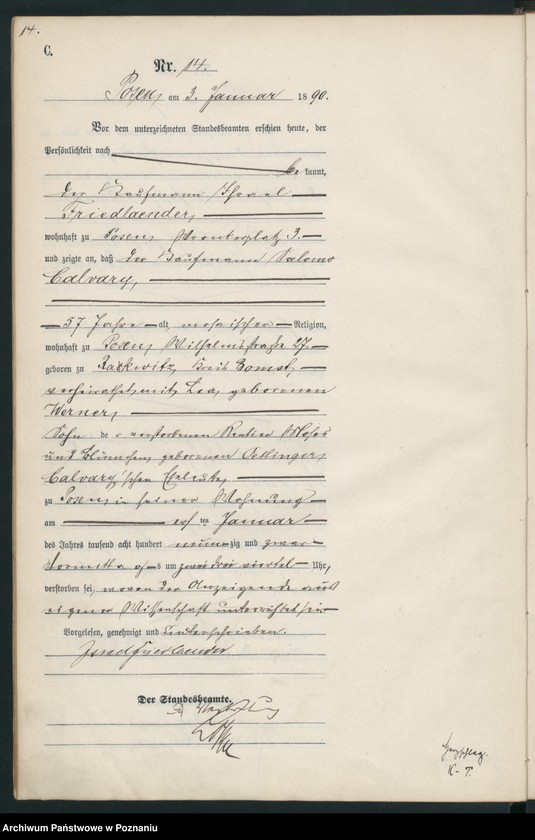 14.
C.
Nr. 14.
Posen, am 3. Januar 1890.
Vor dem unterzeichneten Standesbeamten erschien heute, der
Persönlichkeit nach
be kannt,
der Kaufmann Israel
Friedlaender,
wohnhaft zu Posen, 3.
und zeigte an, daß der Kaufmann Salomo
Calvary,
57 Jahre alt, mosaischer Religion,
wohnhaft zu Posen, Wilhelmstraße 27
geboren zu Rackwitz, Kreis Bomst,
verheirathet mit Lea, geborenen
Werner,
Sohn der verstorbenen Rentier Moses
und Blümchen, geborenen Oettinger,
Calvary'schen Eheleute,
zu Posen, in seiner Wohnung
am ersten Januar
des Jahres tausend acht hundert neunzig und zwar
Vormittags um drei viertel Uhr,
verstorben sei, wovon der Anzeigende aus
eigener Wissenschaft unterrichtet sei.
Vorgelesen, genehmigt und unterschrieben.
Israel Friedlaender
Der Standesbeamte.
In Vertretung
K-T.
Archiwum Państwowe w Poznaniu